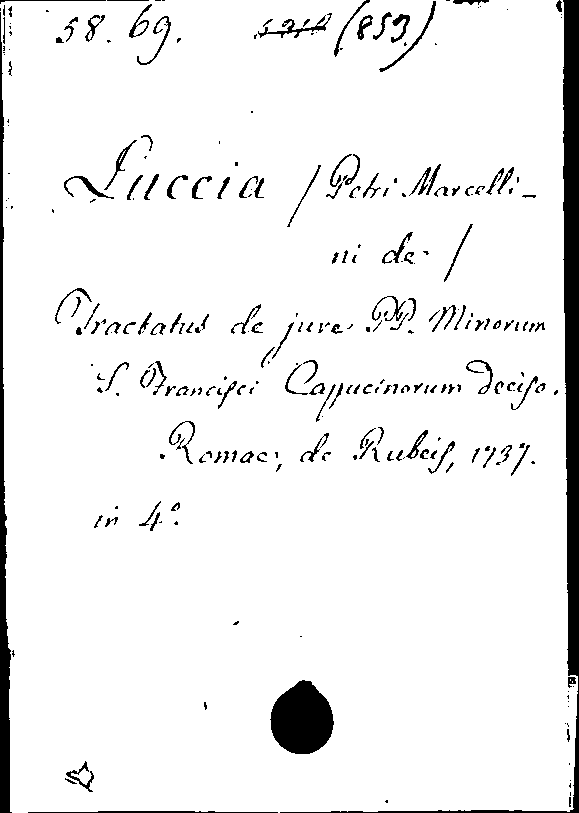 58. 69. (853.)
Luccia / Petri Marcelli-
ni de /
Tractatus de jure PP. Minorum
S. Francisci Cappucinorum Deciso.
Romae, de Rubeis, 1737.
in 4°.